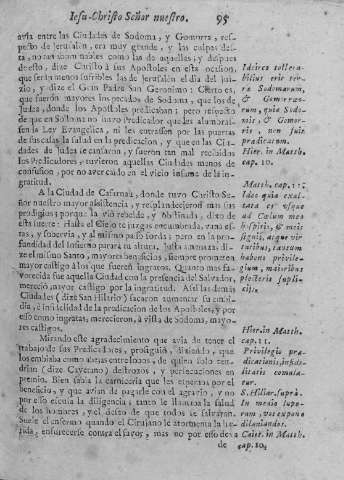 Iesu-Christo Señor nuestro. 95
avia entre las Ciudades de Sodoma, y Gomorra, res-
pecto de Jerusalén, era muy grande, y las culpas des-
ta, no tan abominables como las de aquellas; y despues
de esto, dize Christo à sus Apostoles en esta ocasion,
que serán menos sufribles las de Jerusalén el dia del jui-
zio, y dize el Gran Padre San Geronimo: Cierto es,
que fueron mayores los pecados de Sodoma, que los de
Judea, donde los Apostoles predicaban; pero respecto
de que en Sodoma no huvo Predicador que les alumbras-
sen la Ley Evangelica, ni les entrassen por las puertas
de sus casas la salud en la predicacion, y que en las Ciu-
dades de Judea se cantaron, y fueron tan mal recibidos
los Predicadores, tuvieron aquellas Ciudades menos de
confusion, por no aver caido en el vicio infame de la in-
gratitud.
A la Ciudad de Cafarnau, donde tuvo Christo Se-
ñor nuestro mayor assistencia, y resplandecieron mas sus
prodigios; porque la viò rebelde, y obstinada, dixo de
esta suerte: Hasta el Cielo te juzgas encumbrada, vana en
si, y sobervia, y al mismo passo sorda; pero en la pro-
fundidad del Infierno pararà tu altura. Justa amenaza di-
ze el mismo Santo, mayores beneficios, siempre prometen
mayor castigo à los que fueren ingratos. Quanto mas fa-
vorecida fue aquella Ciudad con la presencia del Salvador,
mereciò mayor castigo por la ingratitud. Assi las demàs
Ciudades (dize San Hilario) sacaron aumentar su embi-
dia, è infidelidad de la predicacion de los Apostoles, y por
esso como ingratas, merecieron, à vista de Sodoma, mayo-
res castigos.
Mirando este agradecimiento que avia de tener el
trabajo de sus Predicadores, prosiguiò, diziendo, que
los embiaba como ovejas entre lobos, de quien solo ten-
drian (dize Cayetano) destrozos, y persecuciones en
premio. Bien sabia la carniceria que les esperaba por el
beneficio, y que avian de pagarle con el agravio, y no
por esso escusa la diligencia; tanto le llamaba la salud
de los hombres, y el desseo de que todos se salvaran.
Suele el enfermo quando el Cirujano le atormenta la he-
rida, enfurecerse contra el favor, mas no por esso dexa
de
Idcirco tollera-
bilius erit ter-
ræ Sodomorum,
& Gomorræo-
rum, quia Sodo-
mis, & Gomor-
ris, non fuit
prædicatum.
Hier. in Matth.
cap. 10.
Matth. cap. 11.
Idcò quia exal-
tata es usque
ad Cælum meo
hospitio, & meis
signis, atque vir-
tutibus, tantum
habens privile-
gium, maioribus
plecteris suppli-
cijs.
Hier. in Matth.
cap. 11.
Privilegio præ-
dicationis, infide-
litatis comula-
tur.
S. Hilar. suprà.
In medio lupo-
rum, vos expono
dilaniandos.
Caiet. in Matth.
cap. 10.